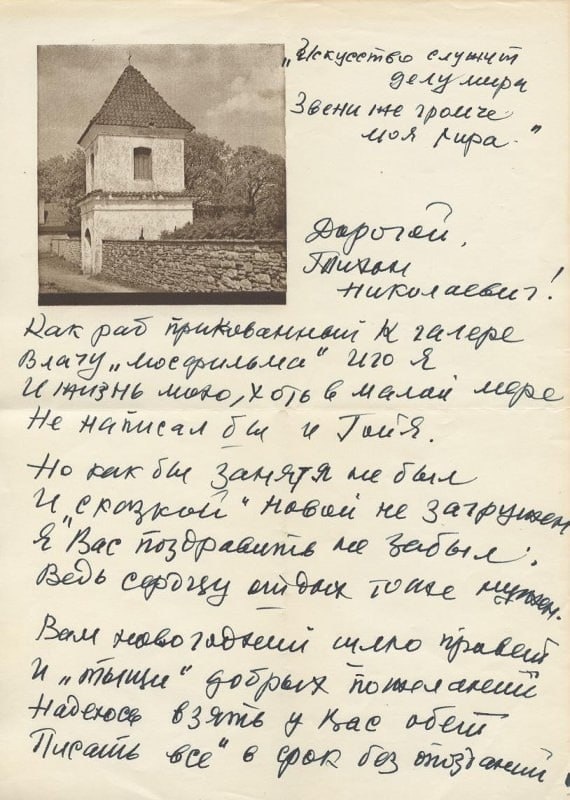 „Искусство служит
делу мира
Звени же громче
моя лира."
Дорогой,
Тихон
Николаевич!
Как раб прикованный к галере
Влачу „Мосфильма" иго я
И жизнь мою, хоть в малой мере
Не написал бы и Гойя.
Но как бы занят я не был
И „сказкой" новой не загружен
Я Вас поздравить не забыл,
Ведь сердцу отдых тоже нужен.
Вам новогодний шлю привет
И „тыщи" добрых пожеланий
Надеюсь взять у Вас обет
Писать „все" в срок без опозданий.